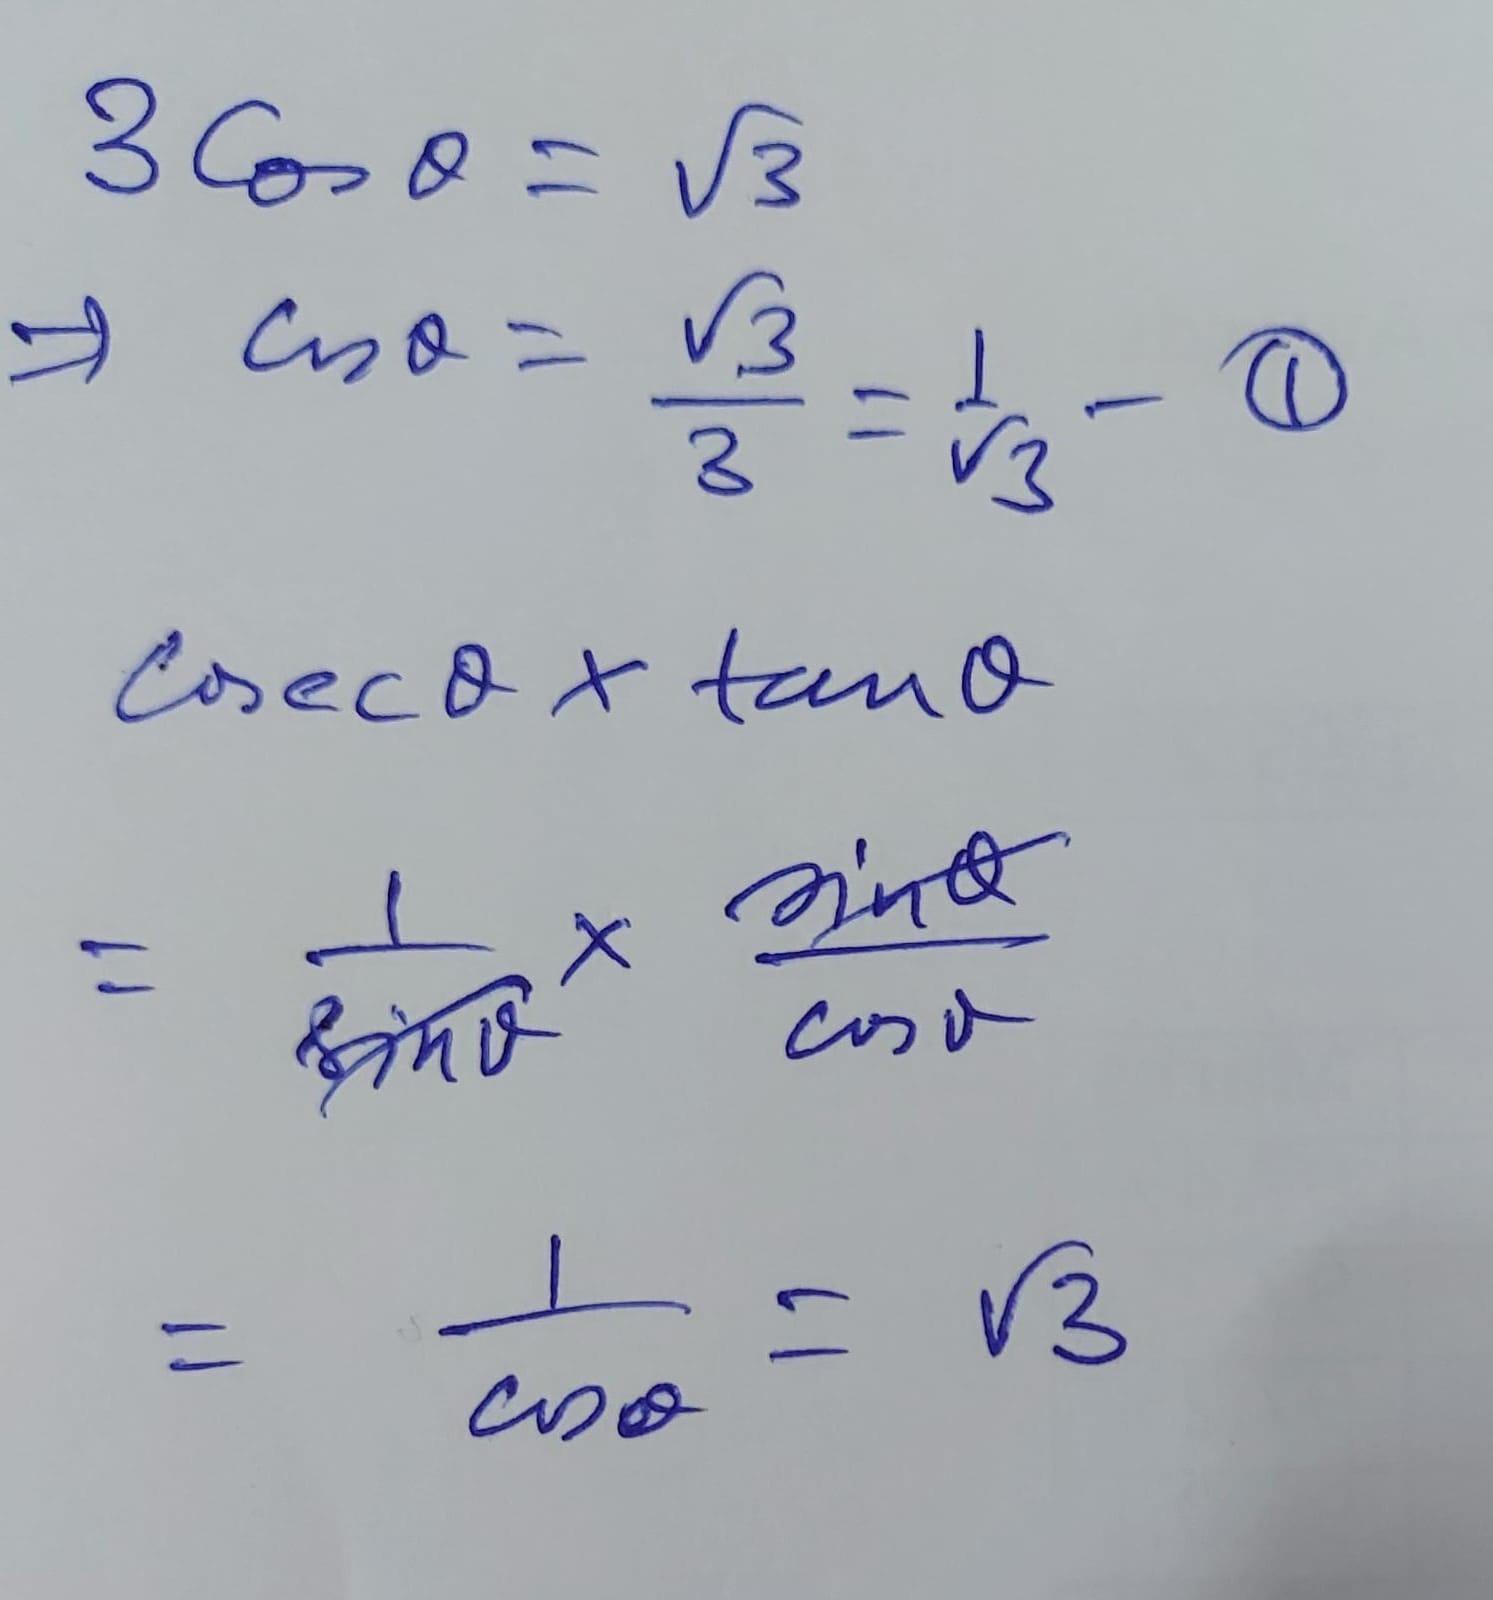 3 Cos θ = √3
⇒ cos θ = √3/3 = 1/√3 - ①
Cosec θ × tan θ
= 1/sin θ × sin θ/cos θ
= 1/cos θ = √3